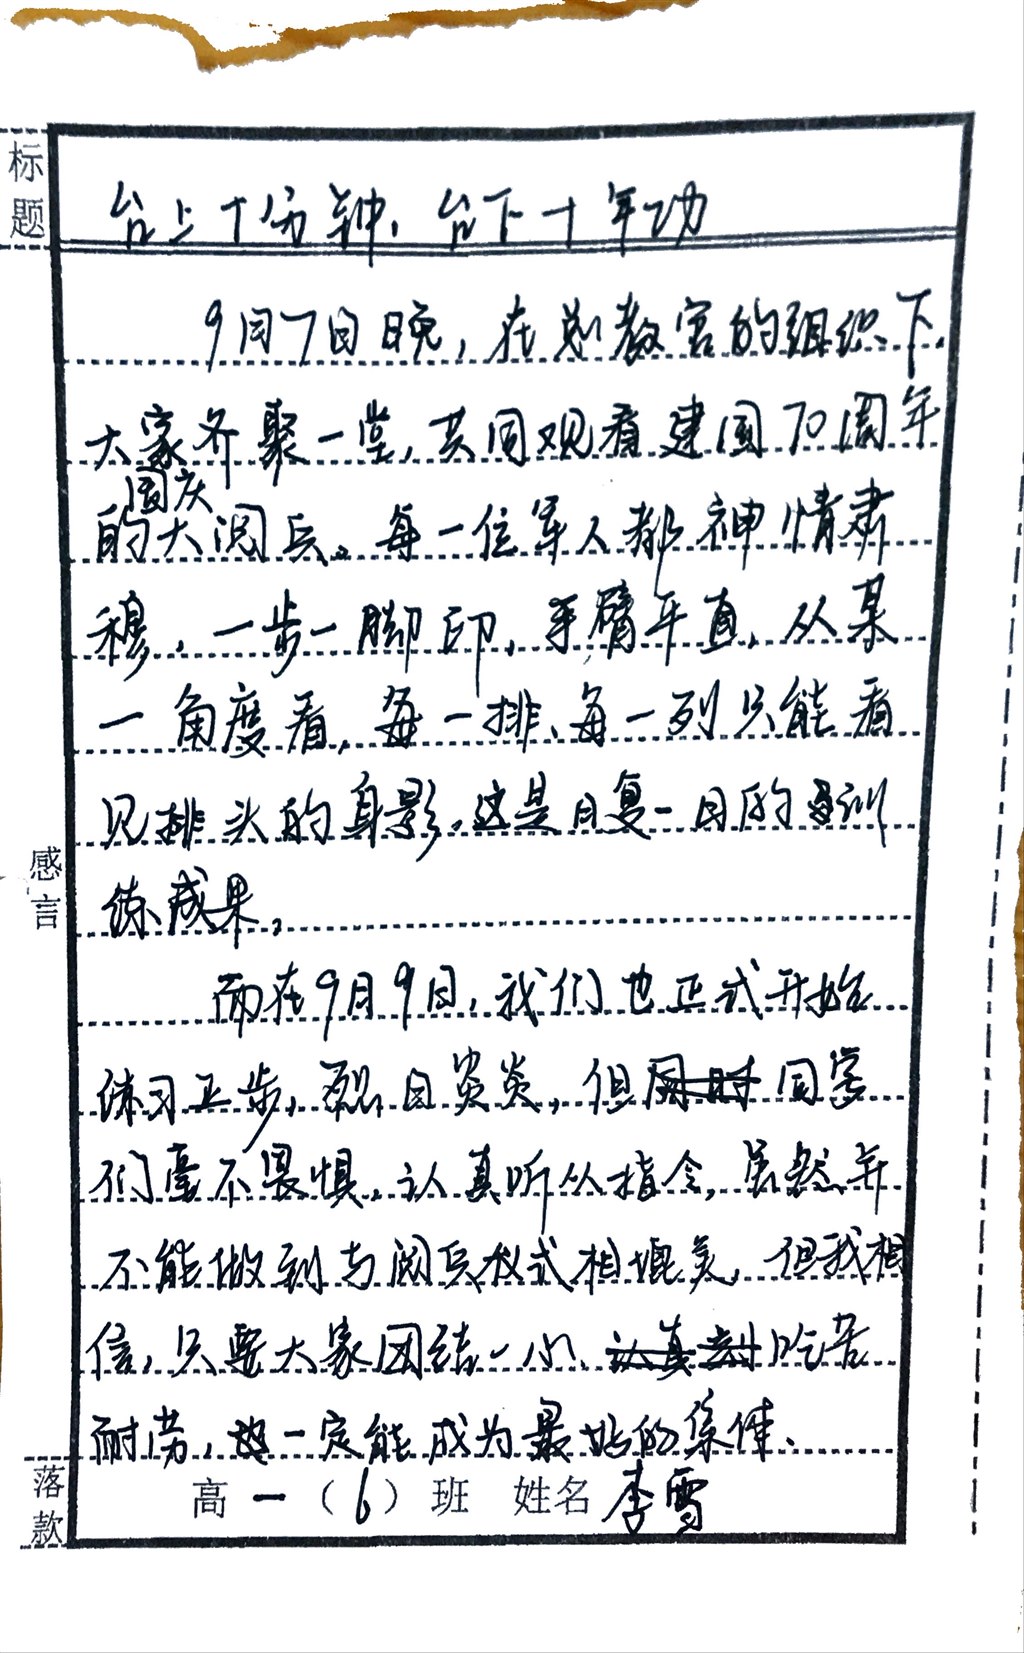 标题
台上十分钟、台下十年功
9月7日晚，在总教官的组织下，
大家齐聚一堂，共同观看建国70周年
国庆
的大阅兵。每一位军人都神情肃
穆，一步一脚印，手臂平直，从某
一角度看，每一排、每一列只能看
见排头的身影。这是日复一日的训
练成果。
感言
而在9月9日，我们也正式开始
练习正步，烈日炎炎，但同时同学
们毫不畏惧，认真听从指令，虽然并
不能做到与阅兵仪式相媲美，但我相
信，只要大家团结一心、认真刻吃苦
耐劳，一定能成为最好的集体、
落款
高一（6）班 姓名 李雪